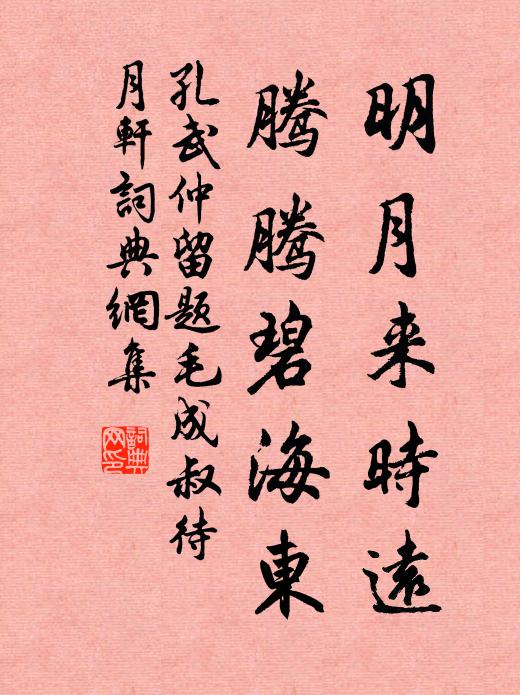 明月来時遠
騰騰碧海東
孔武仲留題毛成叔待
月軒詞典網集
詞典
网印